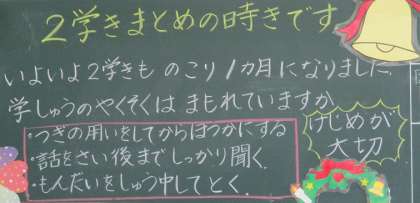 2学きまとめの時きです
いよいよ2学きも のこり1カ月になりました。
学しゅうのやくそくは まもれていますか
・つぎの用いをしてからほうかにする
・話をさい後まで しっかり聞く
・もんだいをしゅう中してとく。
けじめが
大切